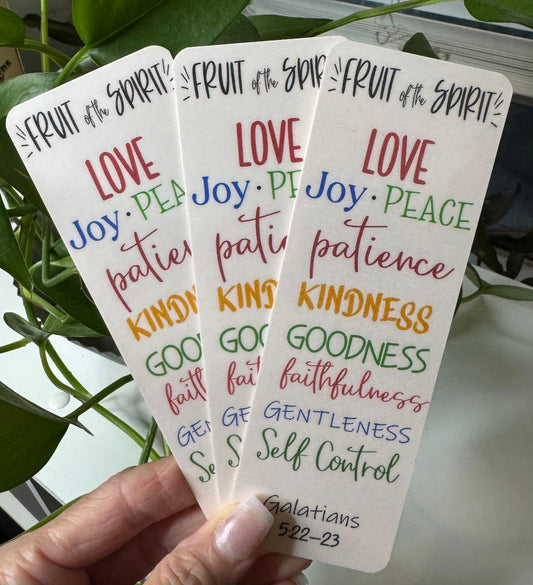 FRUIT of the SPIRIT
LOVE
Joy · PEA
patien
KINDN
GOO
fait
GEN
Se
FRUIT of the SPIRIT
LOVE
Joy · PE
pati
KIND
GOO
fai
GE
S
FRUIT of the SPIRIT
LOVE
Joy · PEACE
patience
KINDNESS
GOODNESS
faithfulness
GENTLENESS
Self Control
Galatians
5:22–23